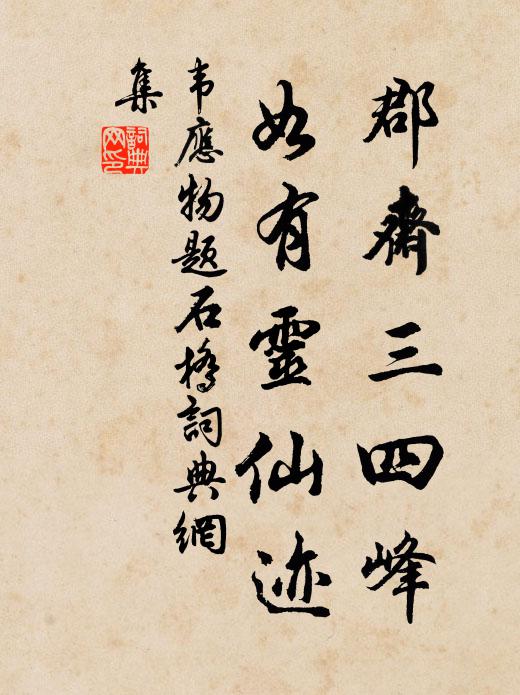 郡齋三四峰
如有靈仙迹
韦應物题石橋詞典網
集
詞典網印